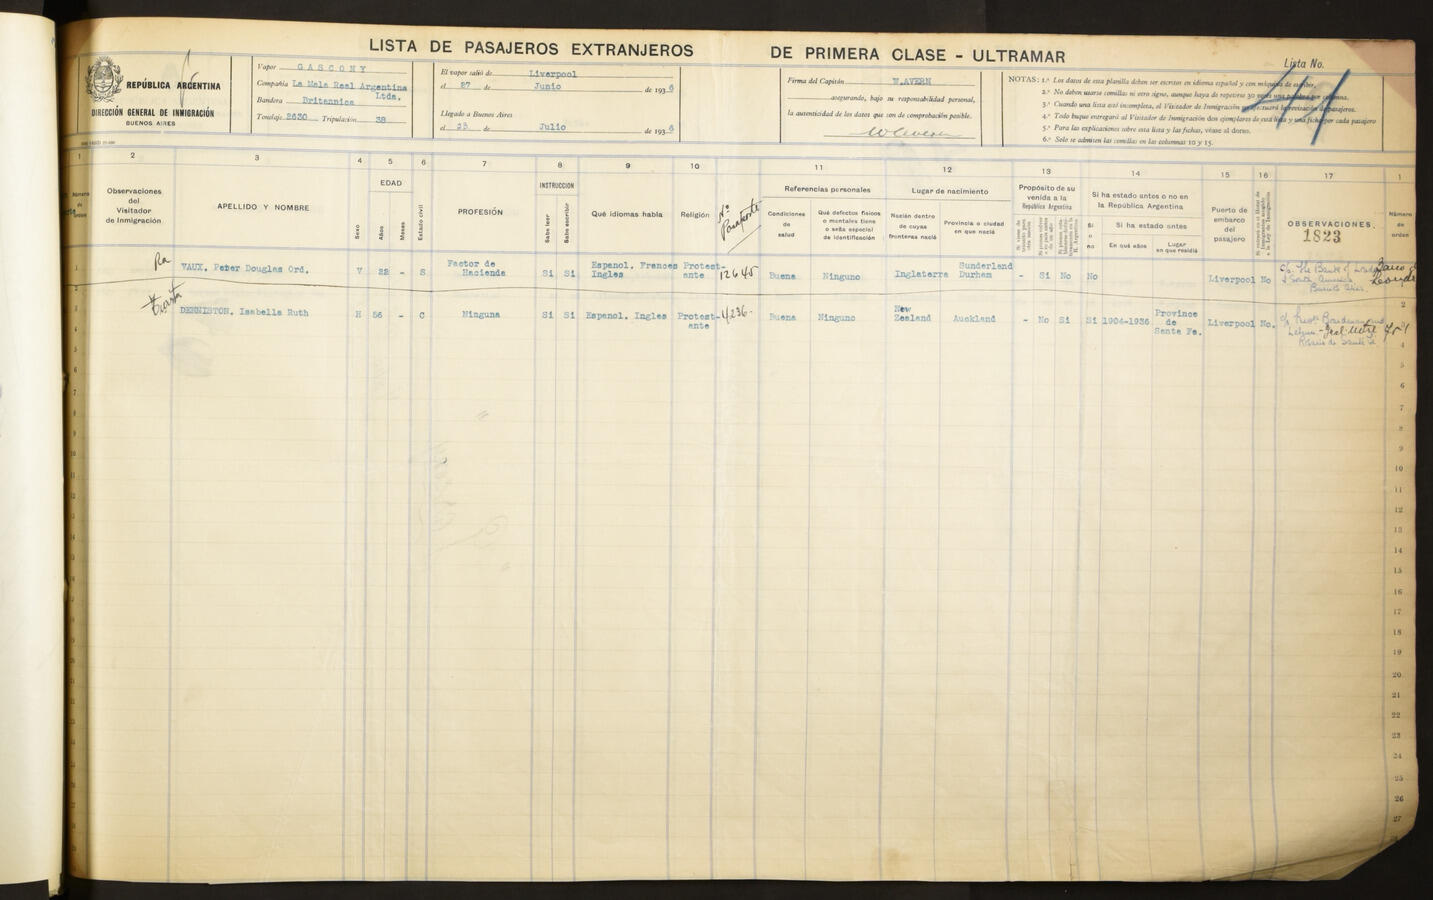 LISTA DE PASAJEROS EXTRANJEROS DE PRIMERA CLASE - ULTRAMAR
Lista No.
41
REPÚBLICA ARGENTINA
DIRECCIÓN GENERAL DE INMIGRACIÓN
BUENOS AIRES
Vapor GASCONY
Compañía La Mala Real Argentina Ltda.
Bandera Britannica
Tonelaje 2630 Tripulación 38
El vapor salió de Liverpool
el 27 de Junio de 1936
Llegado a Buenos Aires
el 23 de Julio de 1936
Firma del Capitán W.AVERN
asegurando, bajo su responsabilidad personal,
la autenticidad de los datos que son de comprobación posible.
NOTAS: 1.ª Los datos de esta planilla deben ser escritos en idioma español y con máquina de escribir.
2.ª No deben usarse comillas ni otro signo, aunque haya de repetirse 30 veces una palabra por columna.
3.ª Cuando una lista esté incompleta, el Visitador de Inmigración efectuará la revisación de pasajeros.
4.ª Todo buque entregará al Visitador de Inmigración dos ejemplares de esta lista y una ficha por cada pasajero
5.ª Para las explicaciones sobre esta lista y las fichas, véase al dorso.
6.ª Solo se admiten las comillas en las columnas 10 y 15.
1 2 3 4 5 6 7 8 9 10 11 12 13 14 15 16 17 1
Número de orden
Observaciones del Visitador de Inmigración
APELLIDO Y NOMBRE
Sexo
EDAD
Años
Meses
Estado civil
PROFESIÓN
INSTRUCCION
Sabe leer
Sabe escribir
Qué idiomas habla
Religión
Nº Pasaporte
Referencias personales
Condiciones de salud
Qué defectos físicos o mentales tiene o seña especial de identificación
Lugar de nacimiento
Nación dentro de cuyas fronteras nació
Provincia o ciudad en que nació
Propósito de su venida a la República Argentina
Si ha estado antes o no en la República Argentina
Si o no
Si ha estado antes
En qué años
Lugar en que residió
Puerto de embarco del pasajero
OBSERVACIONES
1823
Número de orden
1 VAUX, Peter Douglas Ord. V 22 - S Factor de Hacienda Si Si Espanol, Frances Ingles Protestante 12645 Buena Ninguno Inglaterra Sunderland Durham - Si No No Liverpool No c/o The Bank of London & South America Buenos Aires.
2 DENNISTON, Isabella Ruth H 56 - C Ninguna Si Si Espanol, Ingles Protestante 4236 Buena Ninguno New Zealand Auckland - No Si Si 1904-1936 Province de Santa Fe. Liverpool No.
3
4
5
6
7
8
9
10
11
12
13
14
15
16
17
18
19
20
21
22
23
24
25
26
27